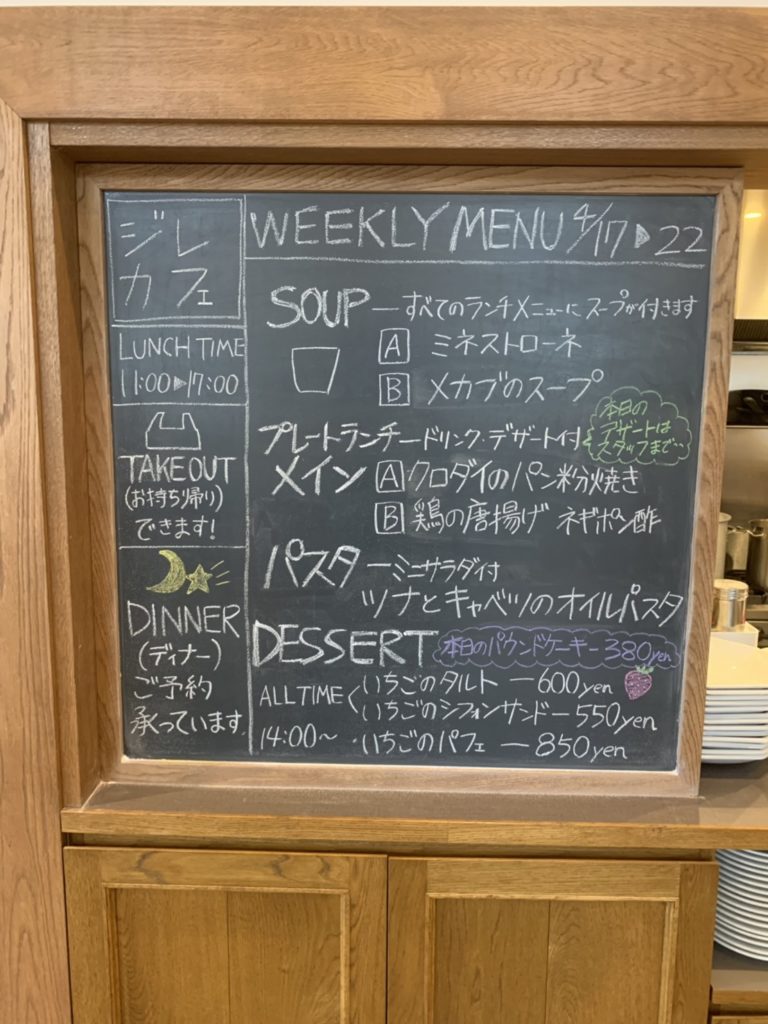 ジレ
カフェ
LUNCH TIME
11:00▶17:00
TAKEOUT
(お持ち帰り)
できます!
DINNER
(ディナー)
ご予約
承っています
WEEKLY MENU 4/17▶22
SOUP ー すべてのランチメニューにスープが付きます
A ミネストローネ
B メカブのスープ
プレートランチードリンク・デザート付
本日の
デザートは
スタッフまで…
メイン A クロダイのパン粉焼き
B 鶏の唐揚げ ネギポン酢
パスタ ーミニサラダ付
ツナとキャベツのオイルパスタ
DESSERT 本日のパウンドケーキー380yen
ALL TIME < いちごのタルト ー600yen
いちごのシフォンサンドー550yen
14:00〜 ・いちごのパフェ ー850yen